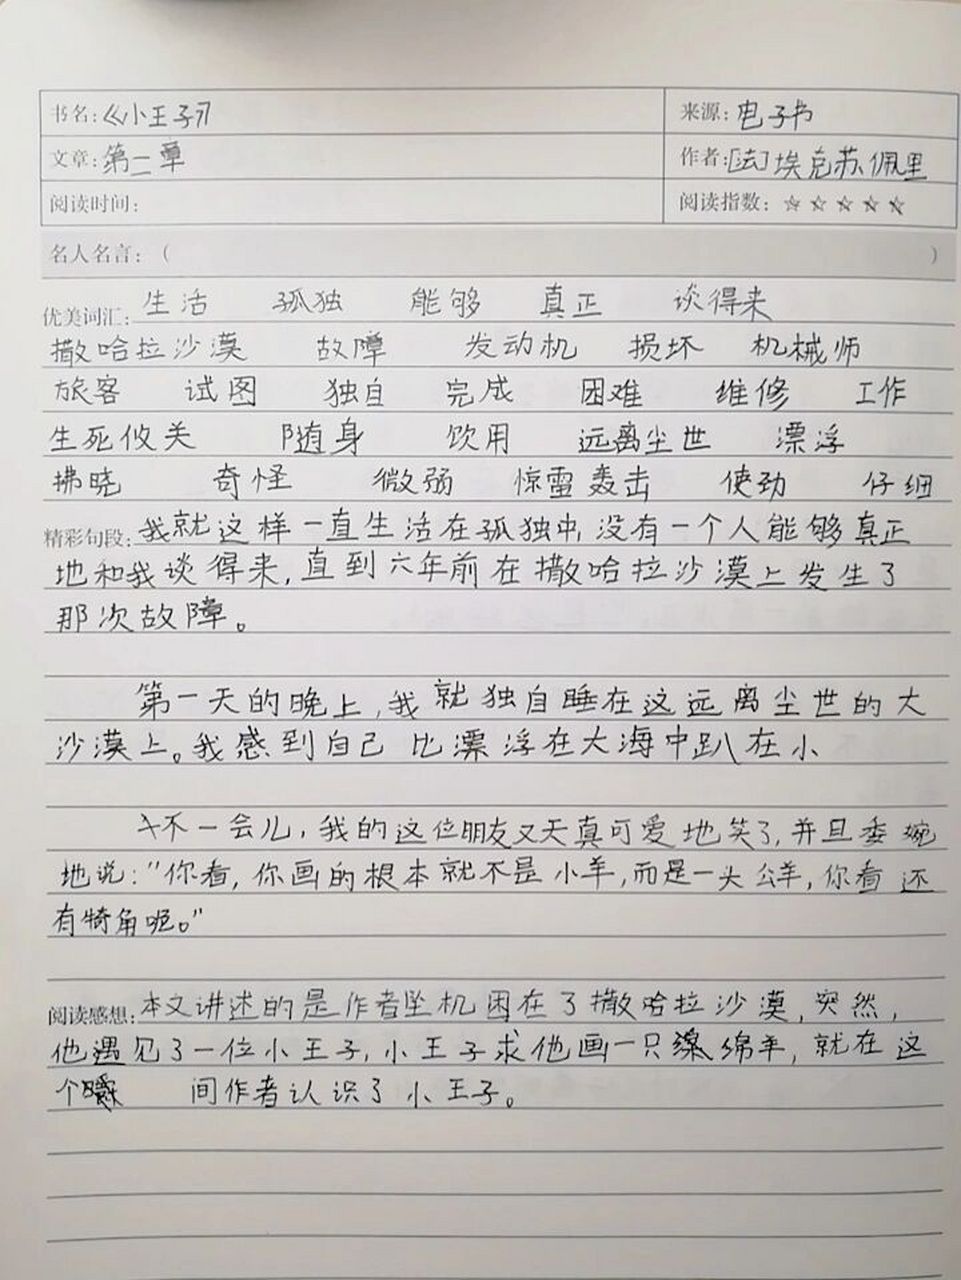 书名:《小王子》 来源: 电子书
文章:第二章 作者:[法]埃克苏佩里
阅读时间: 阅读指数: ☆ ☆ ☆ ☆ ☆
名人名言: ( )
优美词汇: 生活 孤独 能够 真正 谈得来
撒哈拉沙漠 故障 发动机 损坏 机械师
旅客 试图 独自 完成 困难 维修 工作
生死攸关 随身 饮用 远离尘世 漂浮
拂晓 奇怪 微弱 惊雷轰击 使劲 仔细
精彩句段: 我就这样一直生活在孤独中,没有一个人能够真正
地和我谈得来,直到六年前在撒哈拉沙漠上发生了
那次故障。
第一天的晚上,我就独自睡在这远离尘世的大
沙漠上。我感到自己 比漂浮在大海中趴在小
不一会儿,我的这位朋友又天真可爱地笑了,并且委婉
地说:“你看,你画的根本就不是小羊,而是一头公羊,你看还
有犄角呢。”
阅读感想: 本文讲述的是作者坐机困在了撒哈拉沙漠,突然,
他遇见了一位小王子,小王子求他画一只绵羊,就在这
个 间作者认识了小王子。